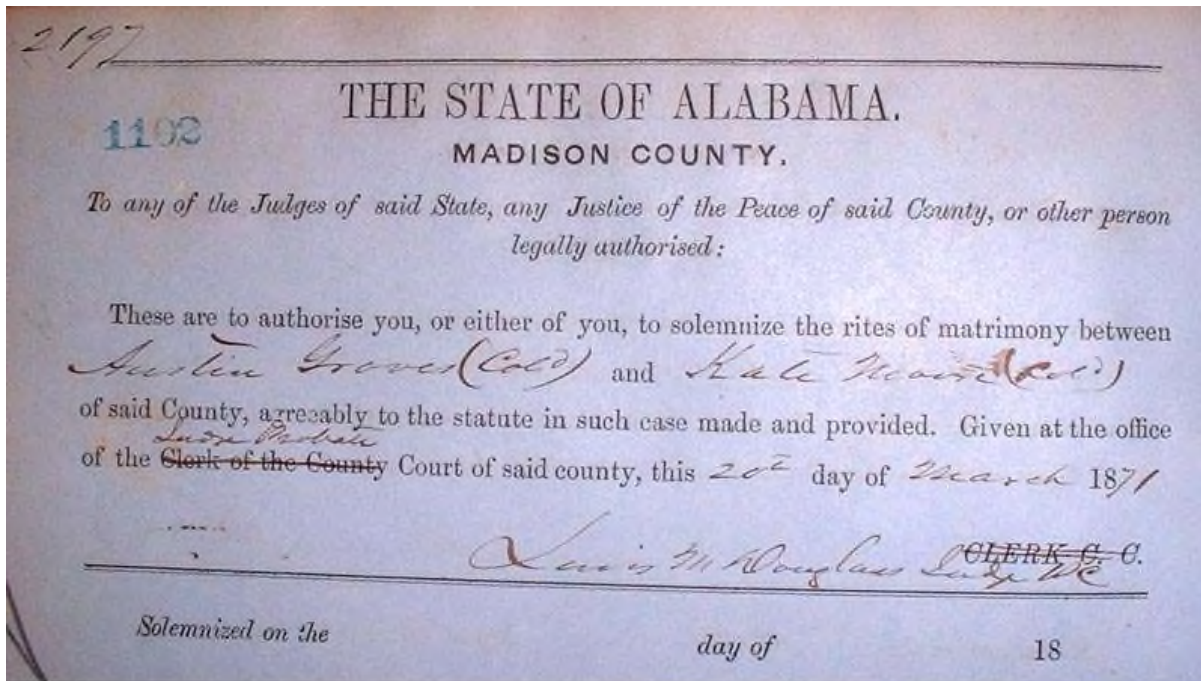 2197
THE STATE OF ALABAMA.
1102
MADISON COUNTY.
To any of the Judges of said State, any Justice of the Peace of said County, or other person
legally authorised:
These are to authorise you, or either of you, to solemnize the rites of matrimony between
Austin Groves (Cold) and Kate (Cold)
of said County, agreeably to the statute in such case made and provided. Given at the office
Judge Probate
of the Clerk of the County Court of said county, this 20th day of March 1871
Lewis M Douglass Judge
CLERK C. C.
Solemnized on the day of 18